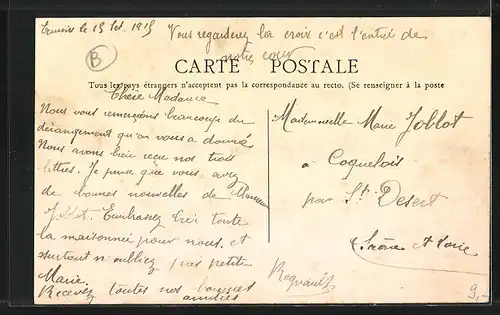 le 15 1915 Vous regarderez la croix c'est l'entrée de
notre cour
B
CARTE POSTALE
Tous les pays étrangers n'acceptent pas la correspondance au recto. (Se renseigner à la poste
Chère Madame
Nous vous remercions beaucoup du
dérangement qu'on vous a donnés
Nous avons bien reçue nos trois
lettres. Je pense que vous avez
de bonnes nouvelles de Monsieur
Joblot. Embrassez bien toute
la maisonnée pour nous. et
surtout n'oubliez pas petite
Marie.
Recevez toutes nos bonnes
amitiés
Mademoiselle Marie Joblot
a Coquelois
par St Desert
Saône et Loire
9.-